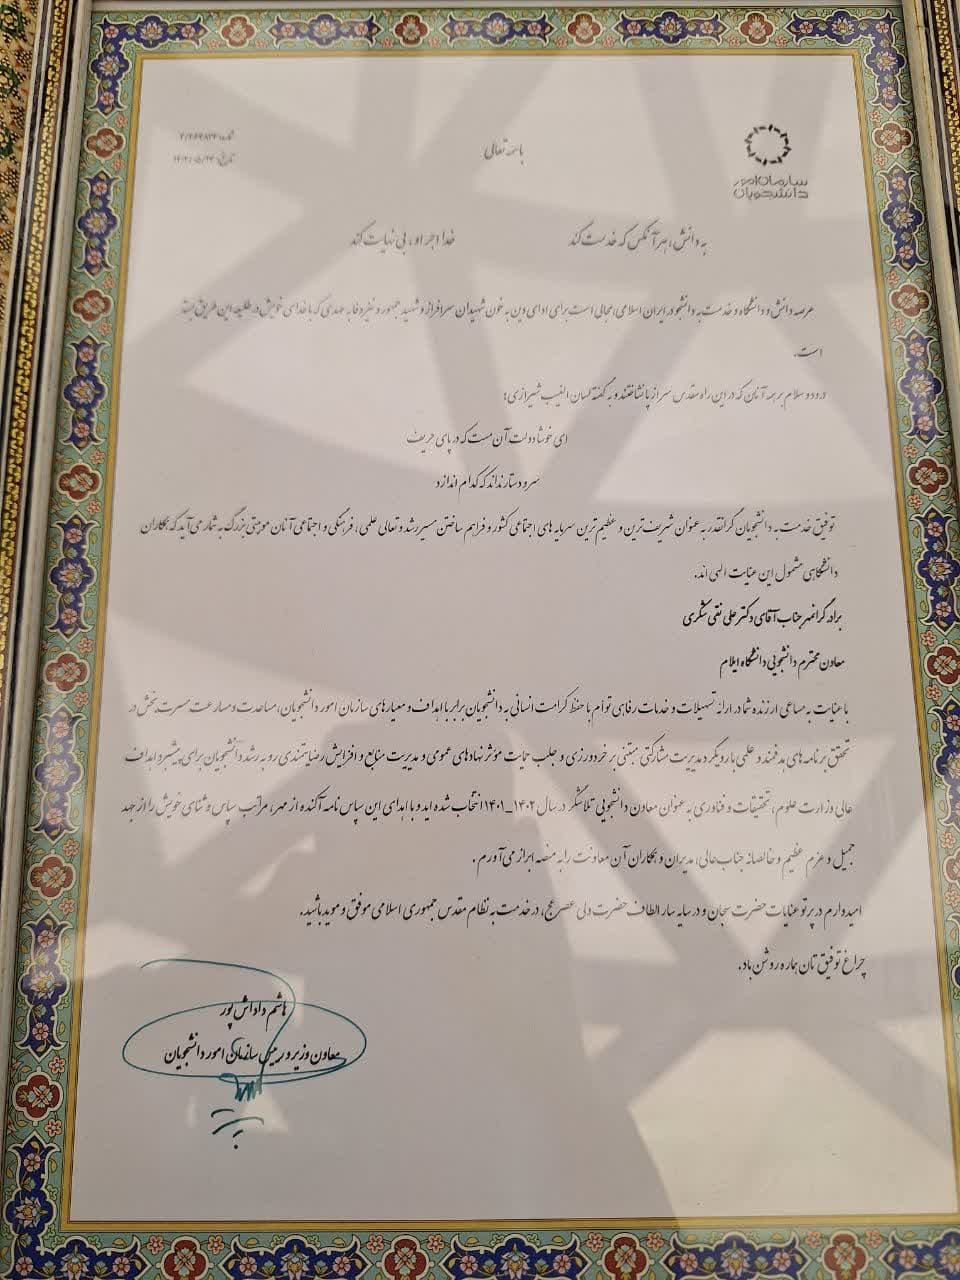 سازمان امور
دانشجویان
باسمه تعالی
شماره: ۲/۲۶۹۸۳۴
تاریخ: ۱۴۰۲/۰۵/۲۴
به دانش، هر آنکس که خدمت کند
خدا اجر او، بی نهایت کند
عرصه دانش و دانشگاه و خدمت به دانشجو در ایران اسلامی، مجالی است برای ادای دین به خون شهیدان سرافراز و شهید جمهور و نیز وفا به عهدی که با خدای خویش در طلیعه این طریق بسته
است.
درود و سلام بر همه آنان که در این راه مقدس سر از پا نشناختند و به گفته لسان الغیب شیرازی:
ای خوشا دولت آن مست که در پای حریف
سر و دستار نداند که کدام اندازد
توفیق خدمت به دانشجویان گرانقدر به عنوان شریف ترین و عظیم ترین سرمایه های اجتماعی کشور و فراهم ساختن مسیر رشد و تعالی علمی، فرهنگی و اجتماعی آنان موهبتی بزرگ به شمار می آید که همکاران
دانشگاهی مشمول این عنایت الهی اند.
برادر گرانمهر جناب آقای دکتر علی نقی شکری
معاون محترم دانشجویی دانشگاه ایلام
با عنایت به مساعی ارزنده شما در ارائه تسهیلات و خدمات رفاهی توام با حفظ کرامت انسانی به دانشجویان برابر با اهداف و معیارهای سازمان امور دانشجویان، مساعدت و مسارعت مسرت بخش در
تحقق برنامه های هدفمند و علمی با رویکرد مدیریت مشارکتی مبتنی بر خردورزی و جلب حمایت موثر نهادهای عمومی و مدیریت منابع و افزایش رضایتمندی رو به رشد دانشجویان برای پیشبرد اهداف
عالی وزارت علوم، تحقیقات و فناوری به عنوان معاون دانشجویی تلاشگر در سال ۱۴۰۲_۱۴۰۱ انتخاب شده اید و با اهدای این سپاس نامه آکنده از مهر، مراتب سپاس و ثنای خویش را از جهد
جمیل و عزم عظیم و خالصانه جناب عالی، مدیران و همکاران آن معاونت را به منصه ابراز می آورم.
امیدوارم در پرتو عنایات حضرت سبحان و در سایه سار الطاف حضرت ولی عصر عج، در خدمت به نظام مقدس جمهوری اسلامی موفق و موید باشید.
چراغ توفیق تان هماره روشن باد.
هاشم داداش پور
معاون وزیر و رییس سازمان امور دانشجویان